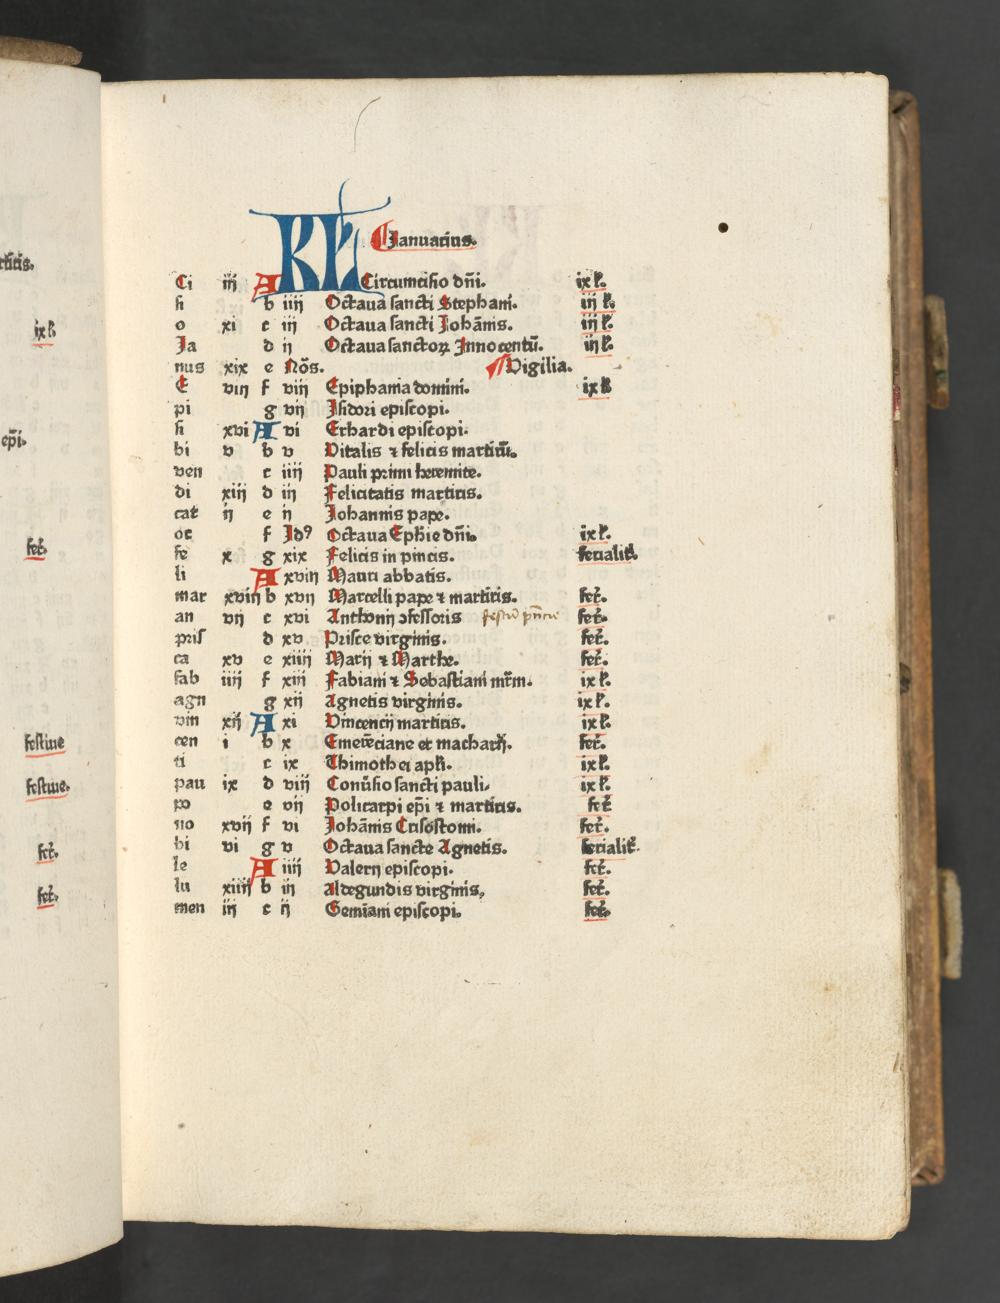 rtiris.
ix lꝰ
epī.
fer̄.
festiue
festiue.
fer̄.
fer̄.
KL Januarius.
Ci iij A Circumcisio dn̄i. ix l.
si b iiij Octaua sancti Stephani. iij l.
o xi c iij Octaua sancti Johānis. iij l.
Ja d ij Octaua sanctoꝝ Innocentū. iij l.
nus xix e Nōs. Vigilia.
E viij f viij Epiphania domini. ix l
pi g vij Isidori episcopi.
fi xvi A vi Erhardi episcopi.
bi v b v Vitalis ⁊ felicis martirū.
ven c iiij Pauli primi heremite.
di xiij d iij Felicitatis martiris.
cat ij e ij Johannis pape.
oc f Idꝰ Octaua Ephie dn̄i. ix l.
fe x g xix Felicis in pincis. ferialit̄.
li A xviij Mauri abbatis.
mar xviij b xvij Marcelli pape ⁊ martiris. fer̄.
an vij c xvi Anthonij ꝯfessoris fer̄.
pris d xv Prisce virginis. fer̄.
ca xv e xiiij Marij ⁊ Marthe. fer̄.
fab iiij f xiij Fabiani ⁊ Sebastiani mr̄m. ix l.
agn g xij Agnetis virginis. ix l.
vin xij A xi Vincencij martiris. ix l.
cen i b x Emerēciane et macharij. fer̄.
ti c ix Thimothei apl̄i. ix l.
pau ix d viij Conūsio sancti pauli. ix l.
po e vij Policarpi ep̄i ⁊ martiris. fer̄
no xvij f vi Johānis Crisostomi. fer̄.
bi vi g v Octaua sancte Agnetis. ferialit̄.
le A iiij Valerij episcopi. fer̄.
lu xiiij b iij Aldegundis virginis, fer̄.
men iij c ij Gemiani episcopi. fer̄.